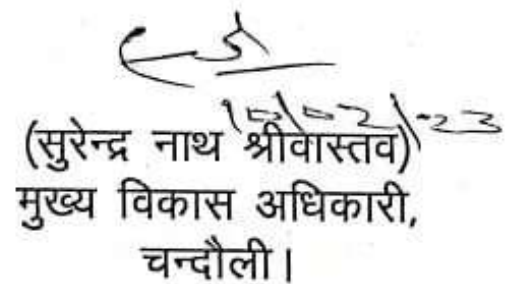 (सुरेन्द्र नाथ श्रीवास्तव)
मुख्य विकास अधिकारी,
चन्दौली।